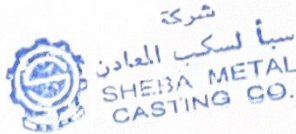 شركة
سبأ لسكب المعادن
SHEBA METAL
CASTING CO.